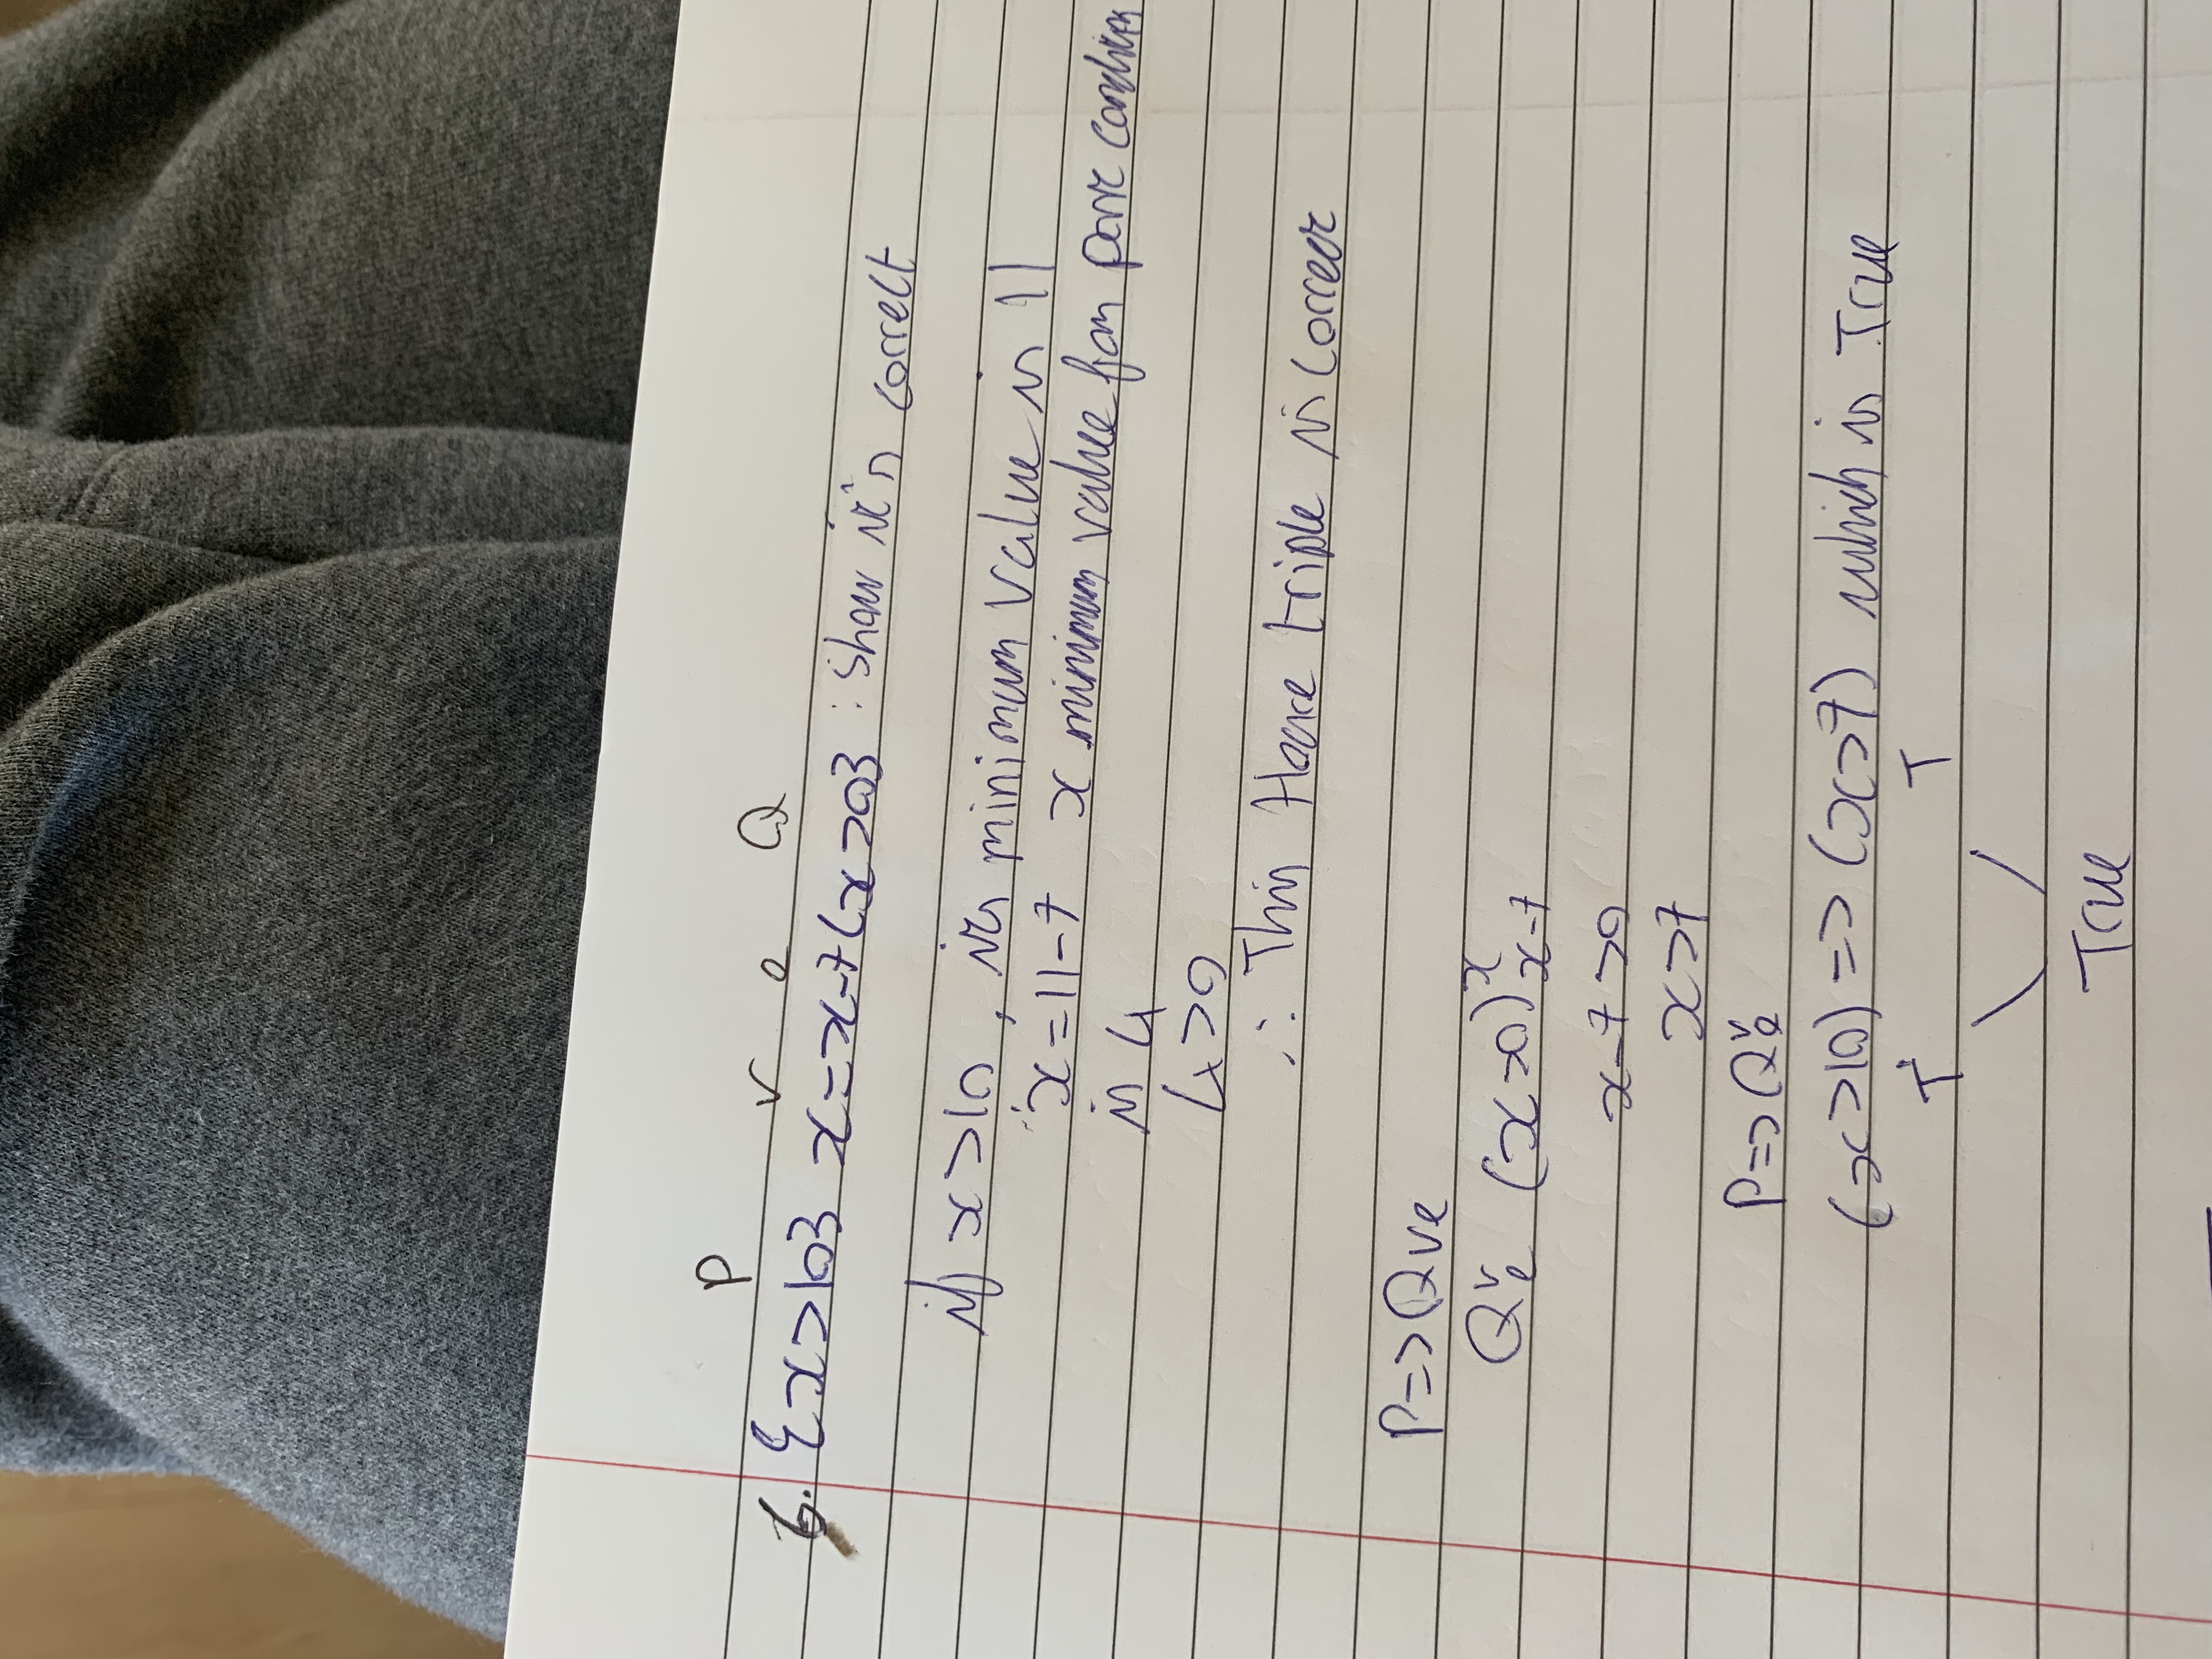 P
v e Q
6. {x>10} x=x-7 {x>0} : Show it's correct
if x>10, its minimum value is 11
x=11-7 x minimum value from post condition
is 4
4>0
∴ This Hoare triple is correct
P=>Qve
Qᵛₑ (x>0)ˣₓ₋₇
x-7>0
x>7
P=>Qᵛₑ
(x>10) => (x>7) which is True
T T
\ /
True